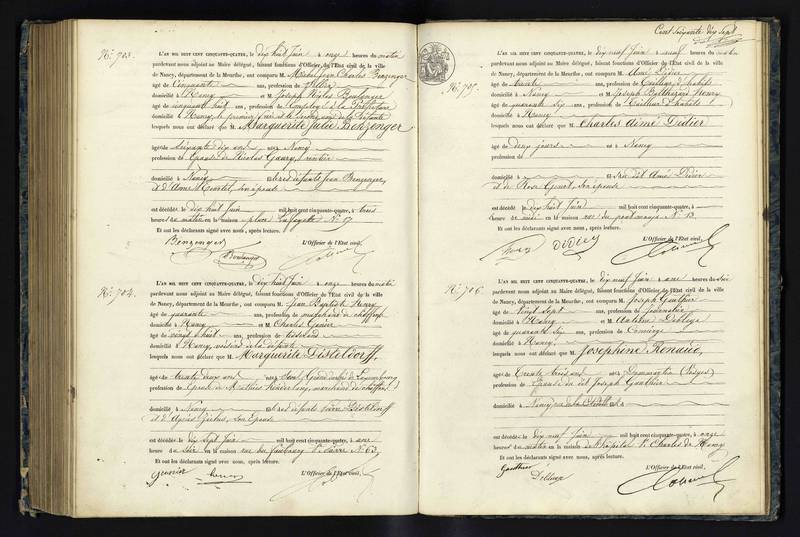 No. 703.
L'AN MIL HUIT CENT CINQUANTE-QUATRE, le dix huit Juin à onze heures du matin
pardevant nous adjoint au Maire délégué, faisant fonctions d'Officier de l'État civil de la ville
de Nancy, département de la Meurthe, ont comparu M. Jean Charles Benzenger
âgé de Cinquante ans, profession de Sellier
domicilié à Nancy et M. Joseph Boulanger
âgé de cinquante huit ans, profession de Employé à la Préfecture
domicilié à Nancy, le premier de la défunte
lesquels nous ont déclaré que M. Marguerite Julie Benzenger
âgé de soixante dix ans né à Nancy
profession de Epouse de Nicolas Gaury, rentier
domicilié à Nancy défunts Jean Benzenger,
et d'Anne son épouse
est décédée le dix huit Juin mil huit cent cinquante-quatre, à trois
heures du matin en la maison place Lafayette No. 17
Et ont les déclarants signé avec nous, après lecture.
L'Officier de l'État civil,
Benzenger
Boulanger
No. 704.
L'AN MIL HUIT CENT CINQUANTE-QUATRE, le dix huit Juin à onze heures du matin
pardevant nous adjoint au Maire délégué, faisant fonctions d'Officier de l'État civil de la ville
de Nancy, département de la Meurthe, ont comparu M. Jean Baptiste Henry
âgé de quarante ans, profession de marchand de chiffons
domicilié à Nancy et M. Charles
âgé de vingt huit ans, profession de tisserand
domicilié à Nancy, voisins de la défunte
lesquels nous ont déclaré que M. Marguerite Disteldorff.
âgé de trente deux ans né à Grand duché de Luxembourg
profession de Epouse de Mathias marchand de chiffons
domicilié à Nancy défunts Pierre Disteldorff
et d'Agnès son Epouse
est décédée le dix Sept Juin mil huit cent cinquante-quatre, à une
heure du soir en la maison rue du faubourg No. 63,
Et ont les déclarants signé avec nous, après lecture.
L'Officier de l'État civil,
henry
Cent Soixante dix Sept
No. 705.
L'AN MIL HUIT CENT CINQUANTE-QUATRE, le dix neuf Juin à neuf heures du matin
pardevant nous adjoint au Maire délégué, faisant fonctions d'Officier de l'État civil de la ville
de Nancy, département de la Meurthe, ont comparu M. Aimé Didier
âgé de trente ans, profession de Tailleur d'habits
domicilié à Nancy et M. Joseph Balthazard Henry
âgé de quarante six ans, profession de Tailleur d'habits
domicilié à Nancy
lesquels nous ont déclaré que M. Charles Aimé Didier
âgé de deux jours né à Nancy
profession de
domicilié à fils dél Aimé Didier
et de Rose son épouse
est décédé le dix huit Juin mil huit cent cinquante-quatre, à
heure de midi en la maison rue du pont mouja No. 13.
Et ont les déclarants signé avec nous, après lecture.
L'Officier de l'État civil,
Henry DIDIER
No. 706.
L'AN MIL HUIT CENT CINQUANTE-QUATRE, le dix neuf Juin à une heure du soir
pardevant nous adjoint au Maire délégué, faisant fonctions d'Officier de l'État civil de la ville
de Nancy, département de la Meurthe, ont comparu M. Joseph Gauthier
âgé de vingt sept ans, profession de Journalier
domicilié à Nancy et M.
âgé de quarante six ans, profession de Concierge
domicilié à Nancy,
lesquels nous ont déclaré que M. Joséphine Renaud,
âgé de trente trois ans né à Dommartin (Vosges)
profession de Epouse de dél Joseph Gauthier
domicilié à Nancy rue de la Citadelle
est décédée le dix neuf Juin mil huit cent cinquante-quatre, à onze
heures du matin en la maison de l'hôpital St. Charles de Nancy
Et ont les déclarants signé avec nous, après lecture.
L'Officier de l'État civil,
Gauthier